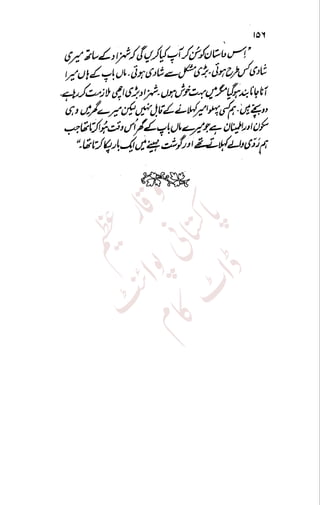 ۱۵۶
"اس داستان کو سُن کر آپ کیا کریں گی کہ شہزاد کے ساتھ میری
شادی کس طرح ہوئی، بڑی مشکل سے شادی ہوئی، ماں باپ کے ہاں میرا
آنا جانا بند ہو گیا مگر میں بہت خوش ہوں۔ شہزاد بڑی اچھی ملازمت کر رہا ہے۔
دو بچے ہیں، ہم کسی پہلو امیر کہلانے کے قابل نہیں لیکن میرے گھر میں وہی
سکون اور اطمینان ہے جو میرے ماں باپ کے گھر اس وقت ہُوا کرتا تھا جب
ہم ردّی والے کہلاتے تھے اور گوشت مہینے میں ایک بار پکا کرتا تھا۔"
وقار عظیم
پاکستانی پوائنٹ
ڈاٹ کام